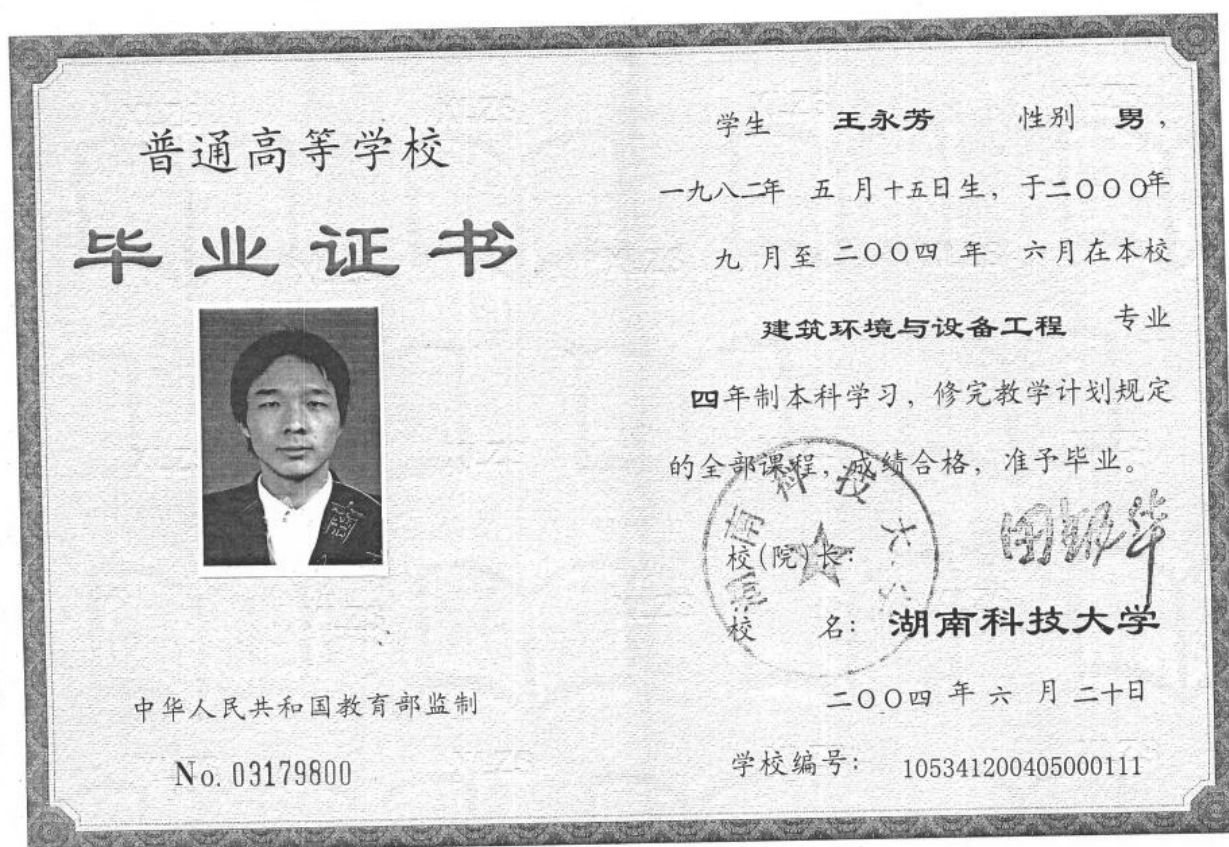 普通高等学校
毕业证书
中华人民共和国教育部监制
No. 03179800
学生 王永芳 性别 男，
一九八二年 五 月十五日生，于二〇〇〇年
九 月至 二〇〇四 年 六月在本校
建筑环境与设备工程 专业
四年制本科学习，修完教学计划规定
的全部课程，成绩合格，准予毕业。
湖南科技大学
校(院)长：
校 名：湖南科技大学
二〇〇四 年 六 月 二十日
学校编号： 105341200405000111